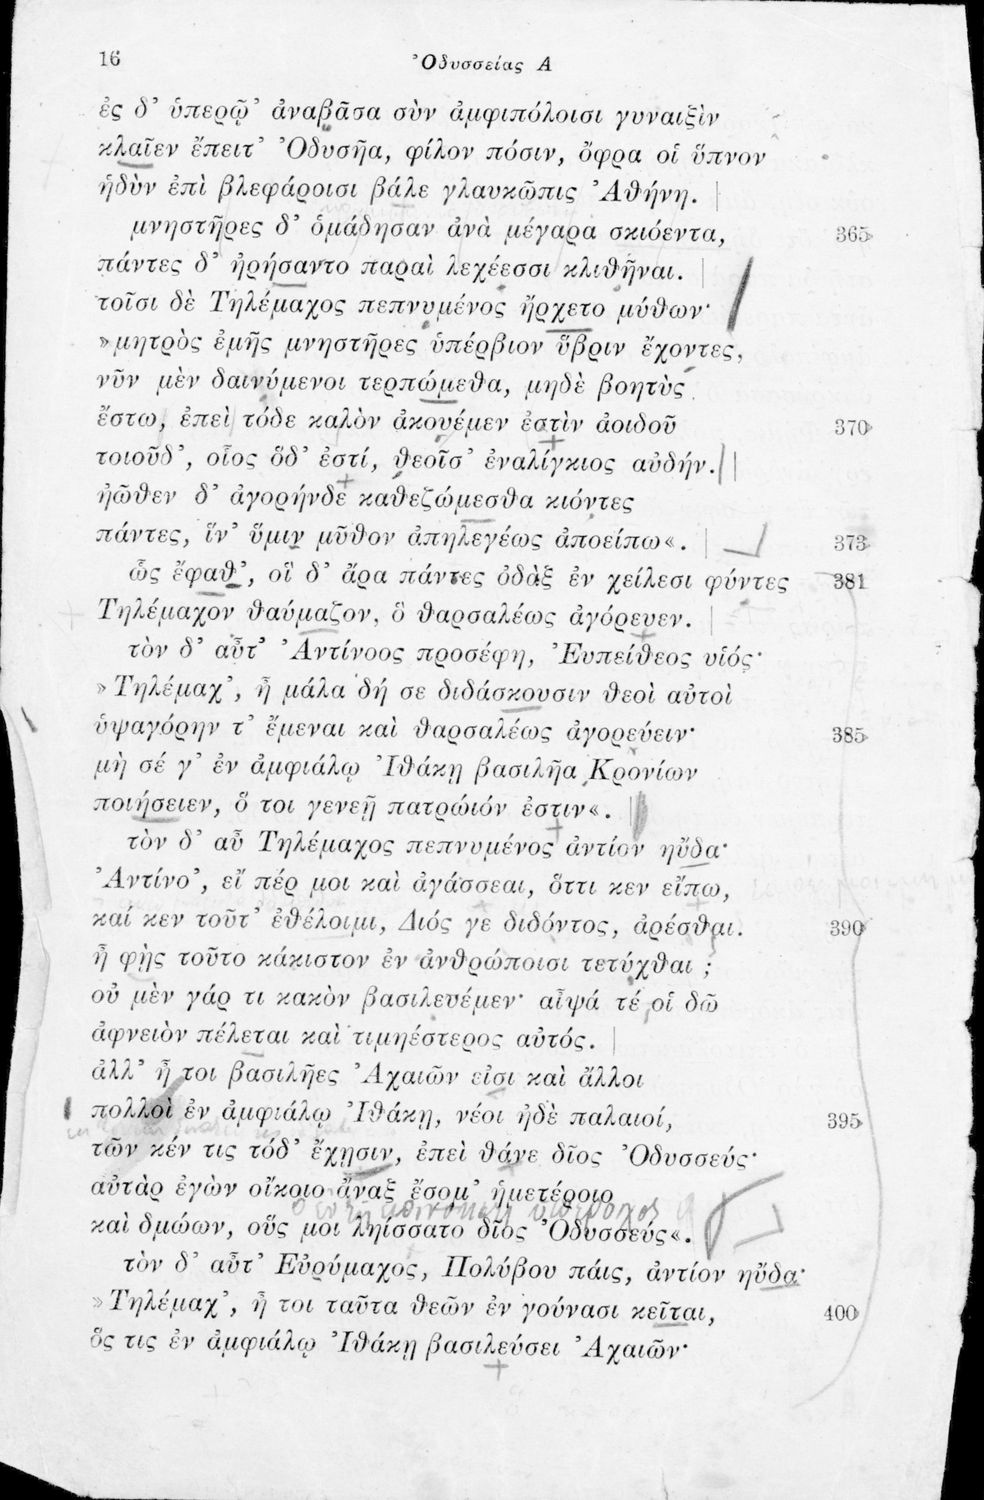 16
Ὀδυσσείας Α
ἐς δ’ ὑπερῷ’ ἀναβᾶσα σὺν ἀμφιπόλοισι γυναιξὶν
κλαῖεν ἔπειτ’ Ὀδυσῆα, φίλον πόσιν, ὄφρα οἱ ὕπνον
ἡδὺν ἐπὶ βλεφάροισι βάλε γλαυκῶπις Ἀθήνη.
μνηστῆρες δ’ ὁμάδησαν ἀνὰ μέγαρα σκιόεντα, 365
πάντες δ’ ἠρήσαντο παραὶ λεχέεσσι κλιθῆναι.
τοῖσι δὲ Τηλέμαχος πεπνυμένος ἤρχετο μύθων·
»μητρὸς ἐμῆς μνηστῆρες ὑπέρβιον ὕβριν ἔχοντες,
νῦν μὲν δαινύμενοι τερπώμεθα, μηδὲ βοητὺς
ἔστω, ἐπεὶ τόδε καλὸν ἀκουέμεν ἐστὶν ἀοιδοῦ 370
τοιοῦδ’, οἷος ὅδ’ ἐστί, θεοῖσ’ ἐναλίγκιος αὐδήν.
ἠῶθεν δ’ ἀγορήνδε καθεζώμεσθα κιόντες
πάντες, ἵν’ ὕμιν μῦθον ἀπηλεγέως ἀποείπω«. 373
ὣς ἔφαθ’, οἳ δ’ ἄρα πάντες ὀδὰξ ἐν χείλεσι φύντες 381
Τηλέμαχον θαύμαζον, ὃ θαρσαλέως ἀγόρευεν.
τὸν δ’ αὖτ’ Ἀντίνοος προσέφη, Ἐυπείθεος υἱός·
»Τηλέμαχ’, ἦ μάλα δή σε διδάσκουσιν θεοὶ αὐτοὶ
ὑψαγόρην τ’ ἔμεναι καὶ θαρσαλέως ἀγορεύειν· 385
μὴ σέ γ’ ἐν ἀμφιάλῳ Ἰθάκῃ βασιλῆα Κρονίων
ποιήσειεν, ὅ τοι γενεῇ πατρώιόν ἐστιν«.
τὸν δ’ αὖ Τηλέμαχος πεπνυμένος ἀντίον ηὔδα·
Ἀντίνο’, εἴ πέρ μοι καὶ ἀγάσσεαι, ὅττι κεν εἴπω,
καί κεν τοῦτ’ ἐθέλοιμι, Διός γε διδόντος, ἀρέσθαι. 390
ἦ φῂς τοῦτο κάκιστον ἐν ἀνθρώποισι τετύχθαι ;
οὐ μὲν γάρ τι κακὸν βασιλευέμεν· αἶψά τέ οἱ δῶ
ἀφνειὸν πέλεται καὶ τιμηέστερος αὐτός.
ἀλλ’ ἦ τοι βασιλῆες Ἀχαιῶν εἰσι καὶ ἄλλοι
πολλοὶ ἐν ἀμφιάλῳ Ἰθάκῃ, νέοι ἠδὲ παλαιοί, 395
τῶν κέν τις τόδ’ ἔχῃσιν, ἐπεὶ θάνε δῖος Ὀδυσσεύς·
αὐτὰρ ἐγὼν οἴκοιο ἄναξ ἔσομ’ ἡμετέροιο
καὶ δμώων, οὕς μοι ληίσσατο δῖος Ὀδυσσεύς«.
τὸν δ’ αὖτ’ Εὐρύμαχος, Πολύβου πάις, ἀντίον ηὔδα·
»Τηλέμαχ’, ἦ τοι ταῦτα θεῶν ἐν γούνασι κεῖται, 400
ὅς τις ἐν ἀμφιάλῳ Ἰθάκῃ βασιλεύσει Ἀχαιῶν·